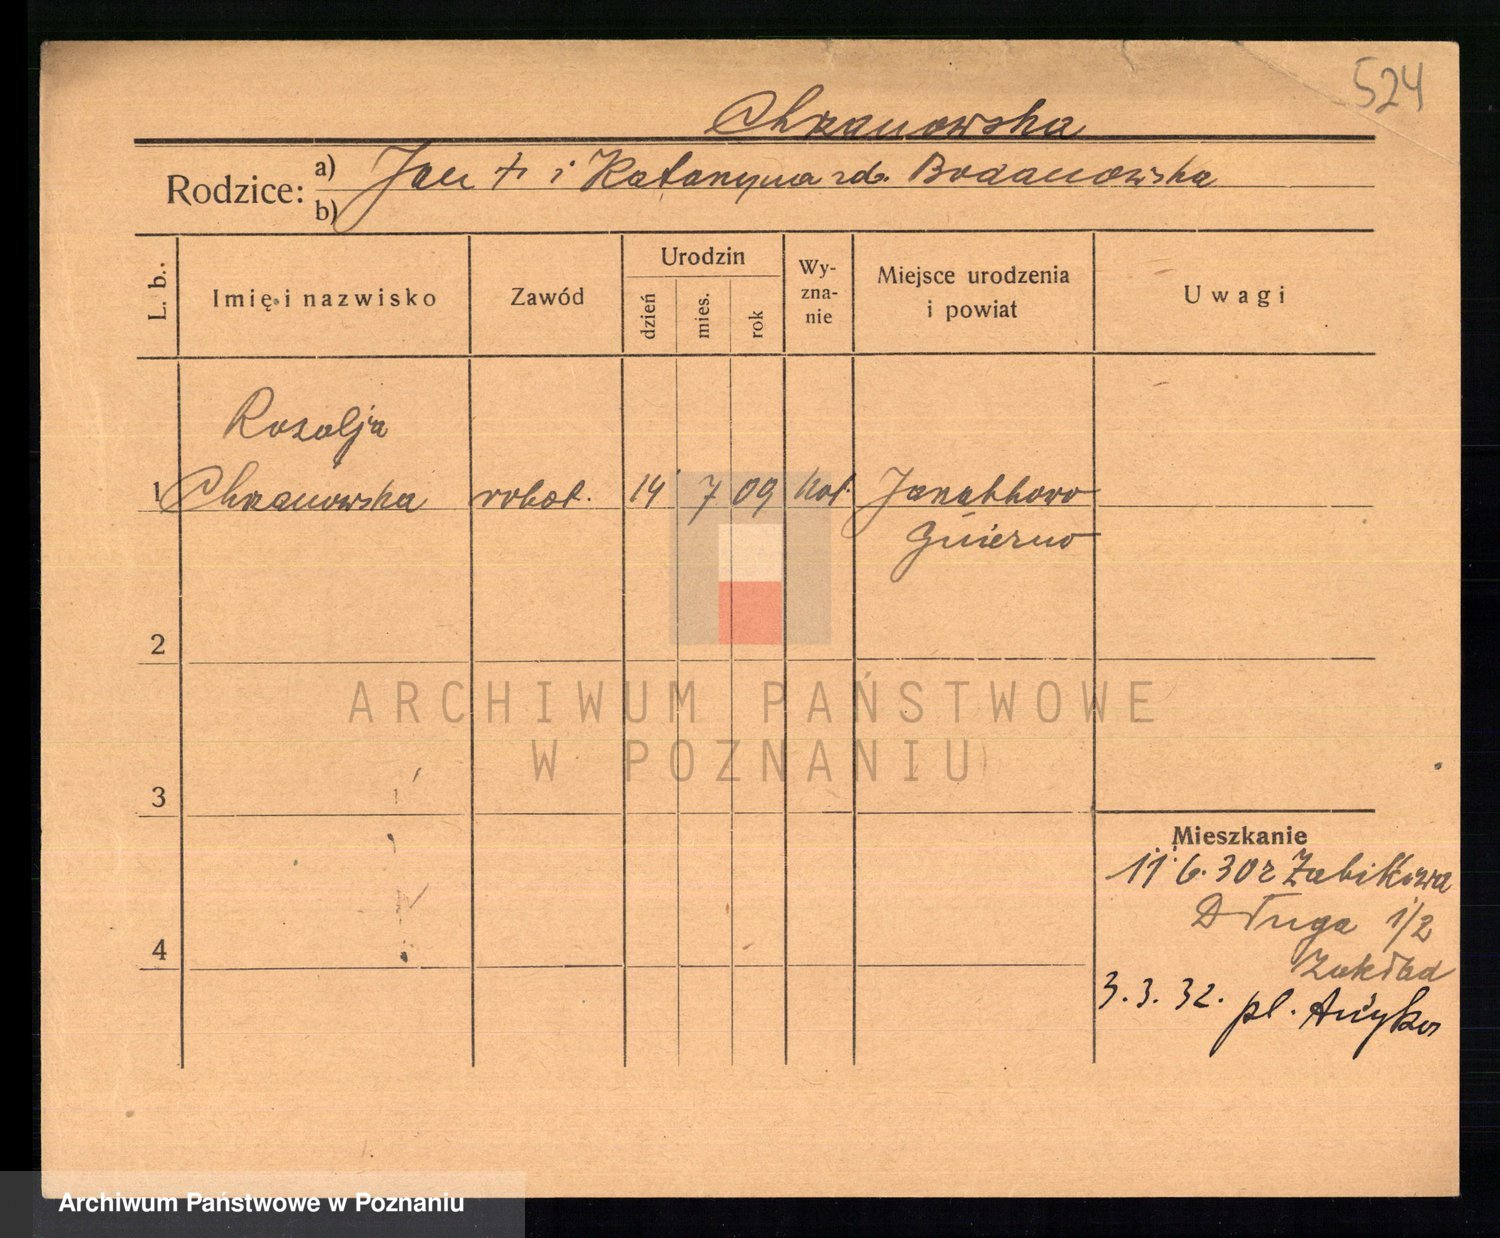 524
Chranowska
Rodzice: a) Jan + i Katarzyna zd. Bodanowska
b)
L. b. Imię i nazwisko Zawód Urodzin dzień mies. rok Wy-zna-nie Miejsce urodzenia i powiat Uwagi
Rozalja
1 Chranowska robot. 14 7 09 kat.
2
ARCHIWUM PAŃSTWOWE
W POZNANIU
3
Mieszkanie
11.6.30 r Żabikowa
Długa 1/2
4
Zakład
3.3.32. pl.
Archiwum Państwowe w Poznaniu